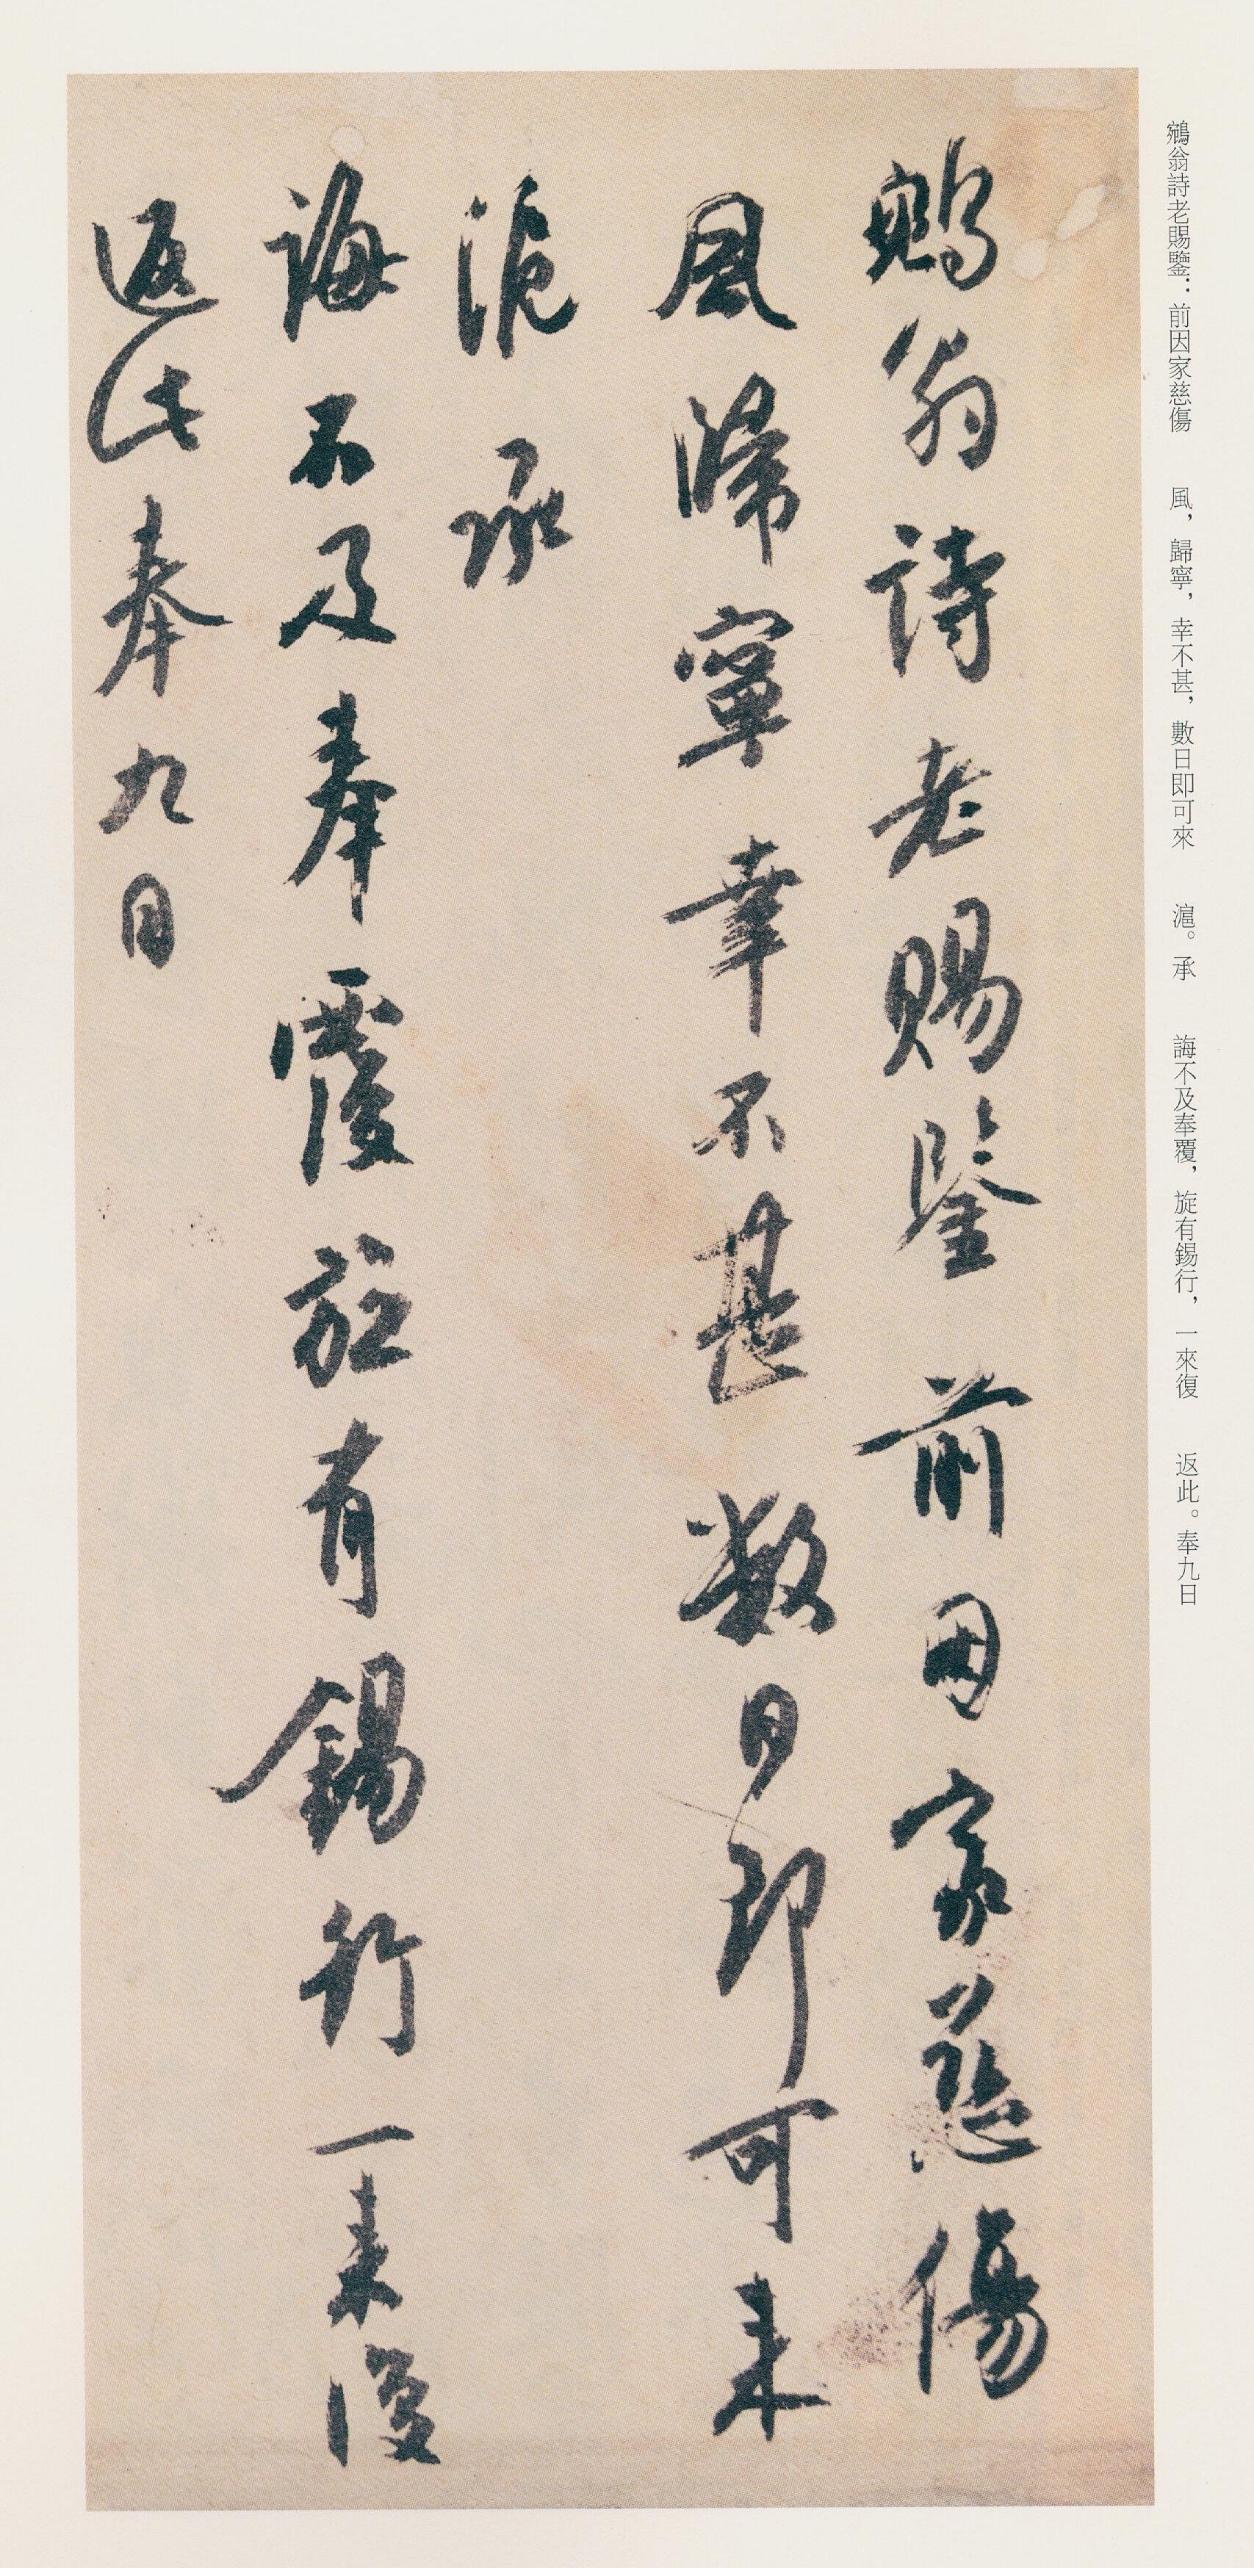 鵷翁詩老賜鑒：前因家慈傷　風，歸寧，幸不甚，數日即可來　滬。承　誨不及奉覆，旋有錫行，一來復　返此。奉九日
鵷翁詩老賜鑒前因家慈傷
風歸寧幸不甚数日即可来
滬承
誨不及奉覆旋有錫行一来復
返此奉九日